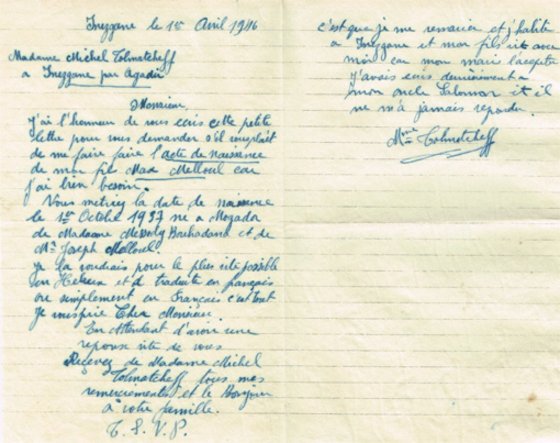 Inezgane le 1er Avril 1946
Madame Michel Tolmatcheff
a Inezgane par Agadir
Monsieur,
J'ai l'honneur de vous ecris cette petite
lettre pour vous demander s'il vous plait
de me faire faire l'acte de naissence
de mon fils Max Melloul car
j'ai bien besoin.
Vous metrez la date de naissence
le 1er Octobre 1937 ne a Mogador
de Madame Messody Bouhadana et de
Mr Joseph Melloul.
je la voudrais pour le plus vite possible
en Hebreux et traduite en français
ou simplement en Français c'est tout
Je Cher Monsieur.
En Attendant d'avoir une
reponse vite de vous
Recevez de Madame Michel
Tolmatcheff tous mes
remerciements et le Bonjour
à votre famille.
T. S. V. P.
c'est que je me remarier et j'habite
a Inezgane et mon fils vit avec
moi car mon mari l'acepte
j'avais ecris dernierement a
mon oncle Salomon et il
ne m'a jamais repondu.
Mme Tolmatcheff